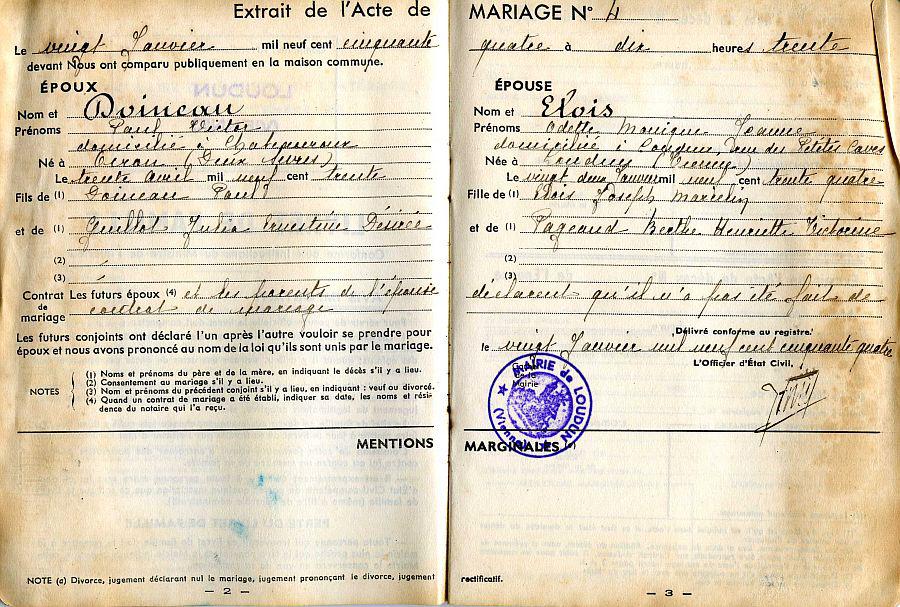 Extrait de l'Acte de MARIAGE N° 4
Le vingt Janvier mil neuf cent cinquante quatre à dix heures trente
devant Nous ont comparu publiquement en la maison commune.
ÉPOUX
Nom et Doineau
Prénoms Paul Victor
domicilié à Chateauroux
Né à (Deux Sèvres)
Le trente Avril mil neuf cent trente
Fils de (1) Doineau Paul
et de (1) Guillot Julia Ernestine Désirée
(2)
(3)
ÉPOUSE
Nom et Elois
Prénoms Odette Monique Jeanne
domiciliée à Loudun, rue des Petites Caves
Née à Loudun (Vienne)
Le vingt deux Janvier mil neuf cent trente quatre
Fille de (1) Elois Joseph Marcelin
et de (1) Pageaud Berthe Henriette Victorine
(2)
(3)
Contrat de mariage Les futurs époux (4) et les parents de l'épouse déclarent qu'il n'a pas été fait de
contrat de mariage
Les futurs conjoints ont déclaré l'un après l'autre vouloir se prendre pour
époux et nous avons prononcé au nom de la loi qu'ils sont unis par le mariage.
NOTES
(1) Noms et prénoms du père et de la mère, en indiquant le décès s'il y a lieu.
(2) Consentement au mariage s'il y a lieu.
(3) Nom et prénoms du précédent conjoint s'il y a lieu, en indiquant : veuf ou divorcé.
(4) Quand un contrat de mariage a été établi, indiquer sa date, les noms et résidence du notaire qui l'a reçu.
Délivré conforme au registre.
le vingt Janvier mil neuf cent cinquante quatre
L'Officier d'État Civil,
de la
Mairie
MAIRIE de LOUDUN
(Vienne)
MENTIONS MARGINALES
NOTE (a) Divorce, jugement déclarant nul le mariage, jugement prononçant le divorce, jugement rectificatif.
— 2 —
— 3 —